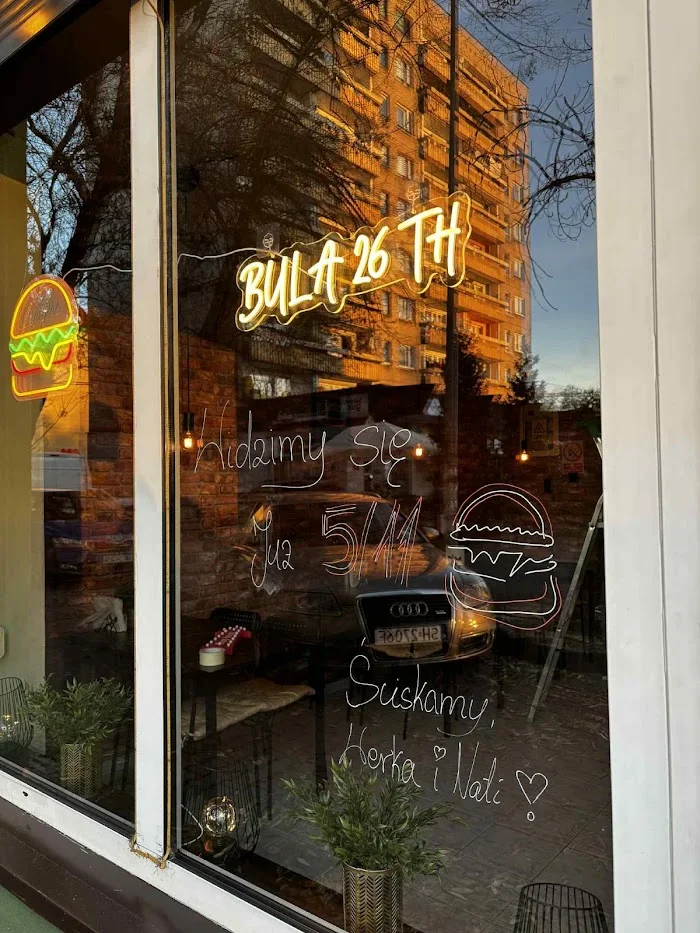 BULA 26 TH
Widzimy się
Już 5/11
Ściskamy,
Werka i Nati
SH 2706F